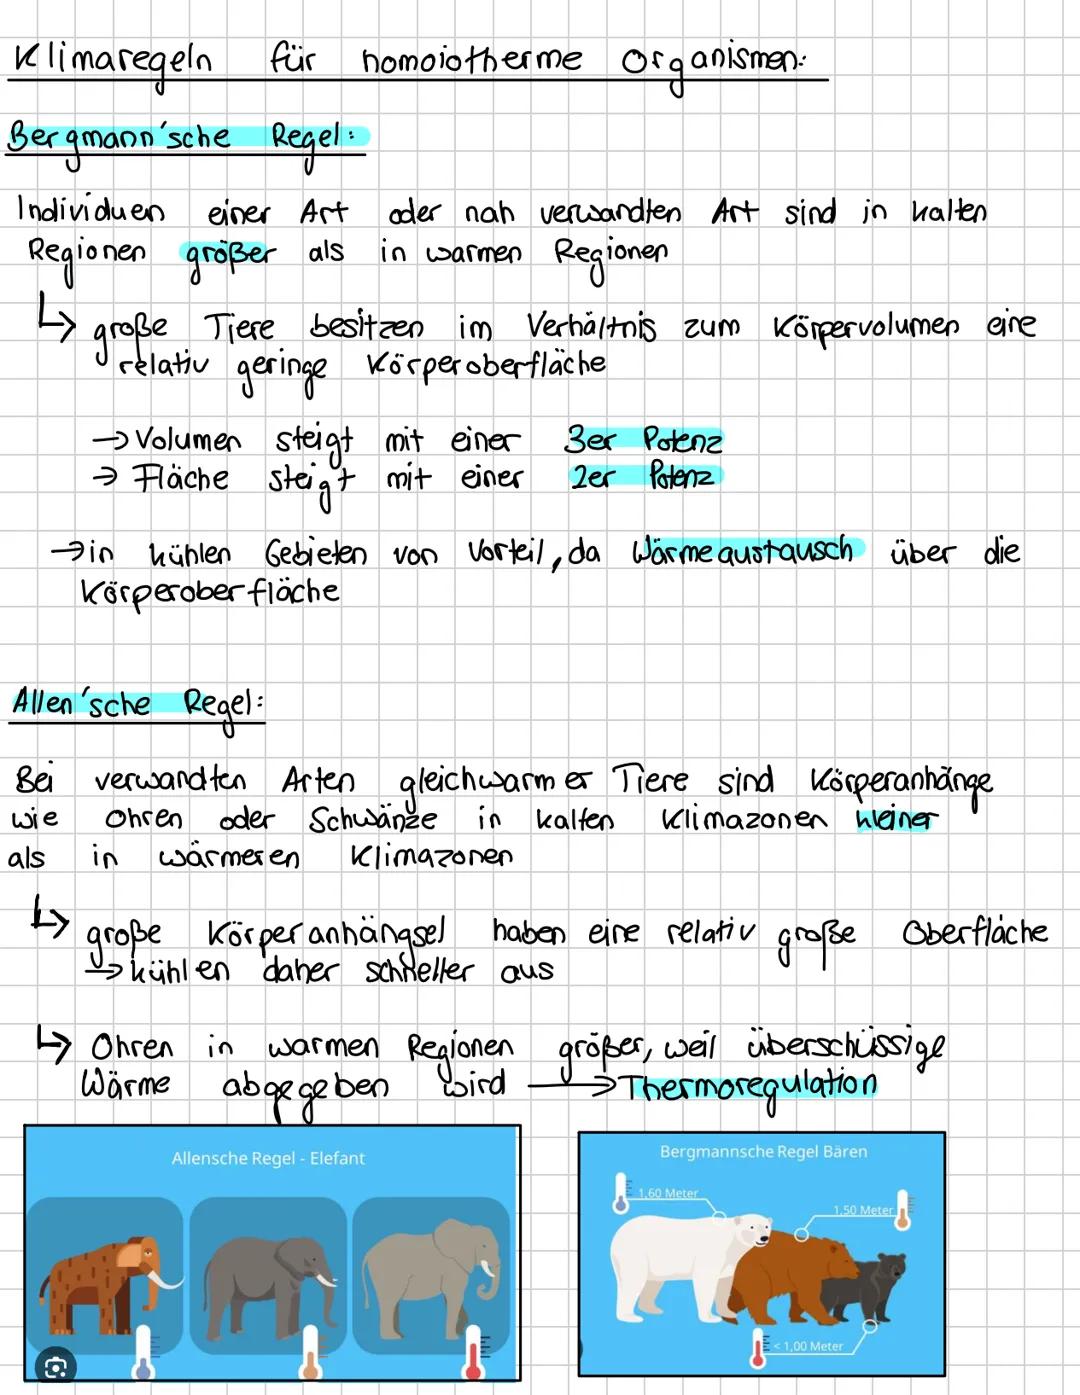 Klimaregeln für homoiotherme Organismen:
Bergmann'sche Regel:
Individuen einer Art oder nah verwandten Art sind in kalten
Regionen größer als in warmen Regionen
↳ große Tiere besitzen im Verhältnis zum Körpervolumen eine
relativ geringe Körperoberfläche
→ Volumen steigt mit einer 3er Potenz
→ Fläche steigt mit einer 2er Potenz
→ in kühlen Gebieten von Vorteil, da Wärmeaustausch über die
Körperoberfläche
Allen'sche Regel:
Bei verwandten Arten gleichwarmer Tiere sind Körperanhänge
wie Ohren oder Schwänze in kalten Klimazonen kleiner
als in wärmeren Klimazonen
↳ große Körperanhängsel haben eine relativ große Oberfläche
→ kühlen daher schneller aus
↳ Ohren in warmen Regionen größer, weil überschüssige
Wärme abgegeben wird → Thermoregulation
Allensche Regel - Elefant
Bergmannsche Regel Bären
1,60 Meter
1,50 Meter
< 1,00 Meter